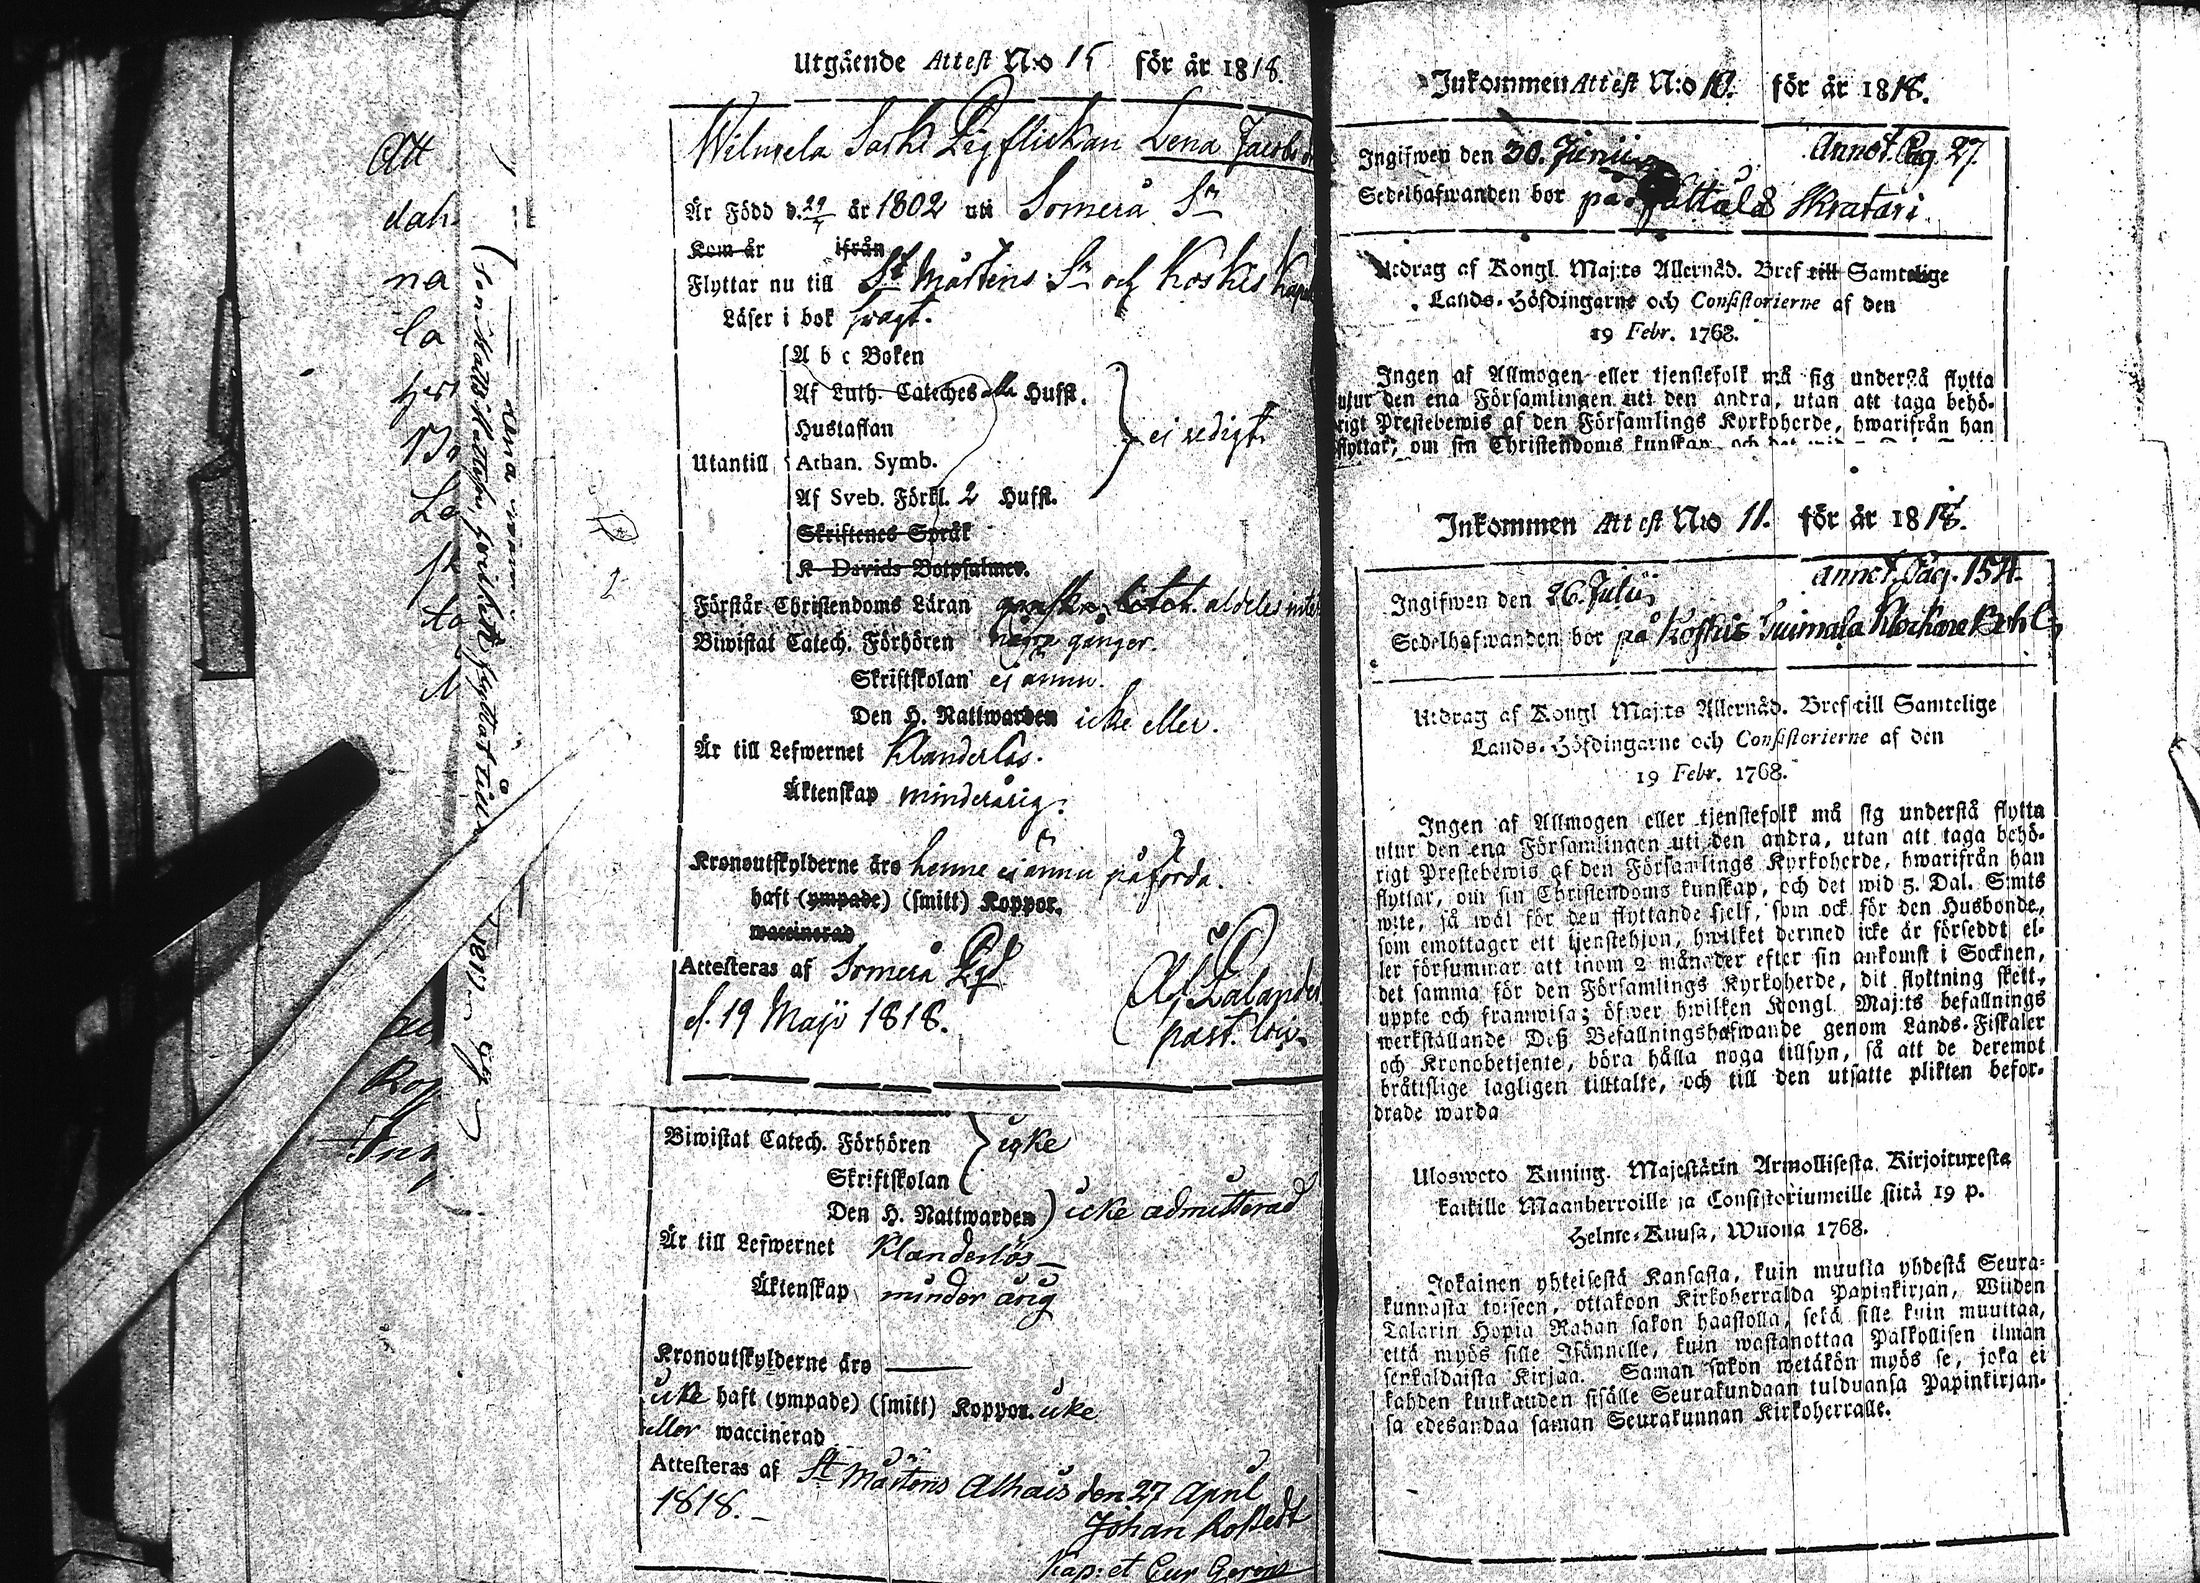 Att
dah
na
la
Utgående Attest N:o 15 för år 1818.
Wilukela Sohl Pigflickan Lena Jacobs
Är Född d. 29 år 1802 uti Somerå Sn
Kom år ifrån
Flyttar nu till St Mårtens Sn och Koskis Kap
Läser i bok svagt.
A b c Boken
Af Luth. Cateches alla Hufst.
Hustaflan
Utantill Athan. Symb.
ei redigt.
Af Sveb. Förkl. 2 Hufst.
Skriftenes Språk
K Davids Botpsalmer.
Förstår Christendoms Läran aldeles intet
Biwistat Catech. Förhören några gånger.
Skriftskolan ej ännu.
Den H. Nattwarden icke eller.
Är till Lefwernet Klanderlös.
Äktenskap minderårig.
Kronoutskylderne äro henne ej ännu påförda.
haft (ympade) (smitt) Koppor.
waccinerad
Attesteras af Somerå Pgd
d. 19 Maji 1818.
Palander
past. loci.
Biwistat Catech. Förhören icke
Skriftskolan
Den H. Nattwarden icke admitterad
Är till Lefwernet Klanderlös
Äktenskap minder årig
Kronoutskylderne äro
icke haft (ympade) (smitt) Koppor. icke
eller waccinerad
Attesteras af St Mårtens den 27 April
1818.
Johan Roßtedt
Kap: et Cur Gerens
Inkommen Attest N:o 10. för år 1818.
Annot. Pag. 27.
Ingifwen den 30. Junii
Sedelhafwanden bor på
Utdrag af Kongl. Maj:ts Allernåd. Bref till Samtelige
Lands-Höfdingarne och Consistorierne af den
19 Febr. 1768.
Ingen af Allmogen eller tjenstefolk må sig understå flytta
utur den ena Församlingen uti den andra, utan att taga behö-
rigt Prestebewis af den Församlings Kyrkoherde, hwarifrån han
flyttar, om sin Christendoms kunskap
Inkommen Attest N:o 11. för år 1818.
Annot. Pag. 154.
Ingifwen den 26. Julii
Sedelhafwanden bor på Koskis
Utdrag af Kongl Maj:ts Allernåd. Bref till Samtelige
Lands-Höfdingarne och Consistorierne af den
19 Febr. 1768.
Ingen af Allmogen eller tjenstefolk må sig understå flytta
utur den ena Församlingen uti den andra, utan att taga behö-
rigt Prestebewis af den Församlings Kyrkoherde, hwarifrån han
flyttar, om sin Christendoms kunskap, och det wid 5. Dal. S:mts
wite, så wäl för den flyttande sjelf, som ock för den Husbonde,
som emottager ett tjenstehjon, hwilket dermed icke är försedt el-
ler försummar att inom 2 månader efter sin ankomst i Socknen,
det samma för den Församlings Kyrkoherde, dit flyttning skett,
uppte och framwisa; öfwer hwilken Kongl Maj:ts befallnings
werkställande Deß Befallningshafwande genom Lands-Fiskaler
och Kronobetjente, böra hålla noga tillsyn, så att de deremot
bråttslige lagligen tilltalte, och till den utsatte plikten befor-
drade warda
Ulosweto Kuning. Majestätin Armollisesta Kirjoituxesta
kaikille Maanherroille ja Consistoriumeille siitä 19 p.
Helme-Kuusa, Wuona 1768.
Jokainen yhteisestä Kansasta, kuin muutta yhdestä Seura-
kunnasta toiseen, ottakoon Kirkoherralda Papinkirjan, Wiiden
Talarin Hopia Rahan sakon haastolla, sekä sille kuin muuttaa,
että myös sille Isännelle, kuin wastanottaa Palkollisen ilman
senkaldaista Kirjaa. Saman sakon wetäkön myös se, joka ei
kahden kuukauden sisälle Seurakundaan tulduansa Papinkirjan-
sa edesandaa saman Seurakunnan Kirkoherralle.